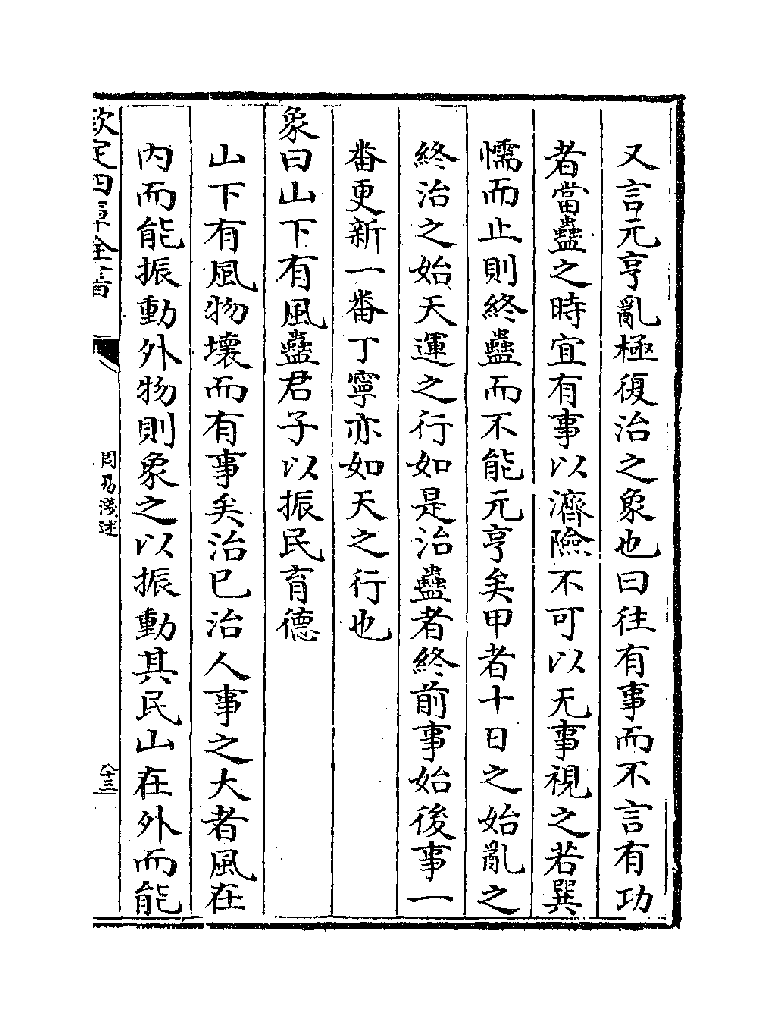 又言元亨亂極復治之象也曰往有事而不言有功
者當蠱之時宜有事以濟險不可以无事視之若巽
懦而止則終蠱而不能元亨矣甲者十日之始亂之
終治之始天運之行如是治蠱者終前事始後事一
番更新一番丁寧亦如天之行也
象曰山下有風蠱君子以振民育德
山下有風物壞而有事矣治已治人事之大者風在
内而能振動外物則象之以振動其民山在外而能
欽定四庫全書
周易淺述
八十三